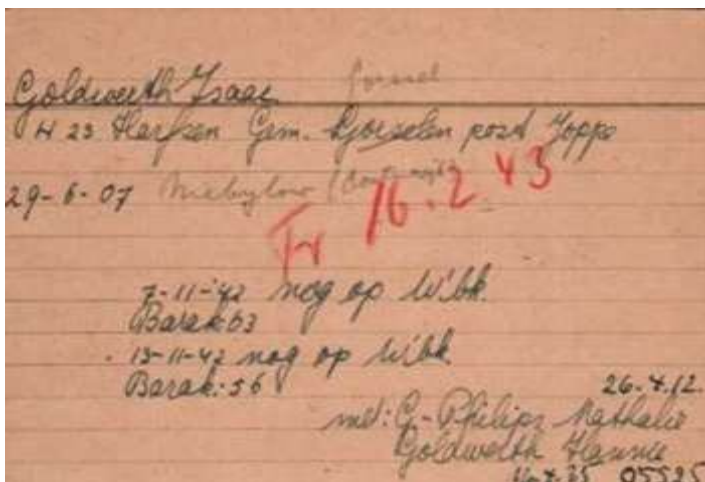 Goldwerth Isaac
H 23 Harfsen Gem. Gorselen post Joppe
29-6-07
Tr 16.2 43
7-11-42 nog op W'bk.
Barak 63
13-11-42 nog op W'bk.
Barak: 56
26.4.12.
met: G.-Philips Nathalie
Goldwerth Hannie
05525